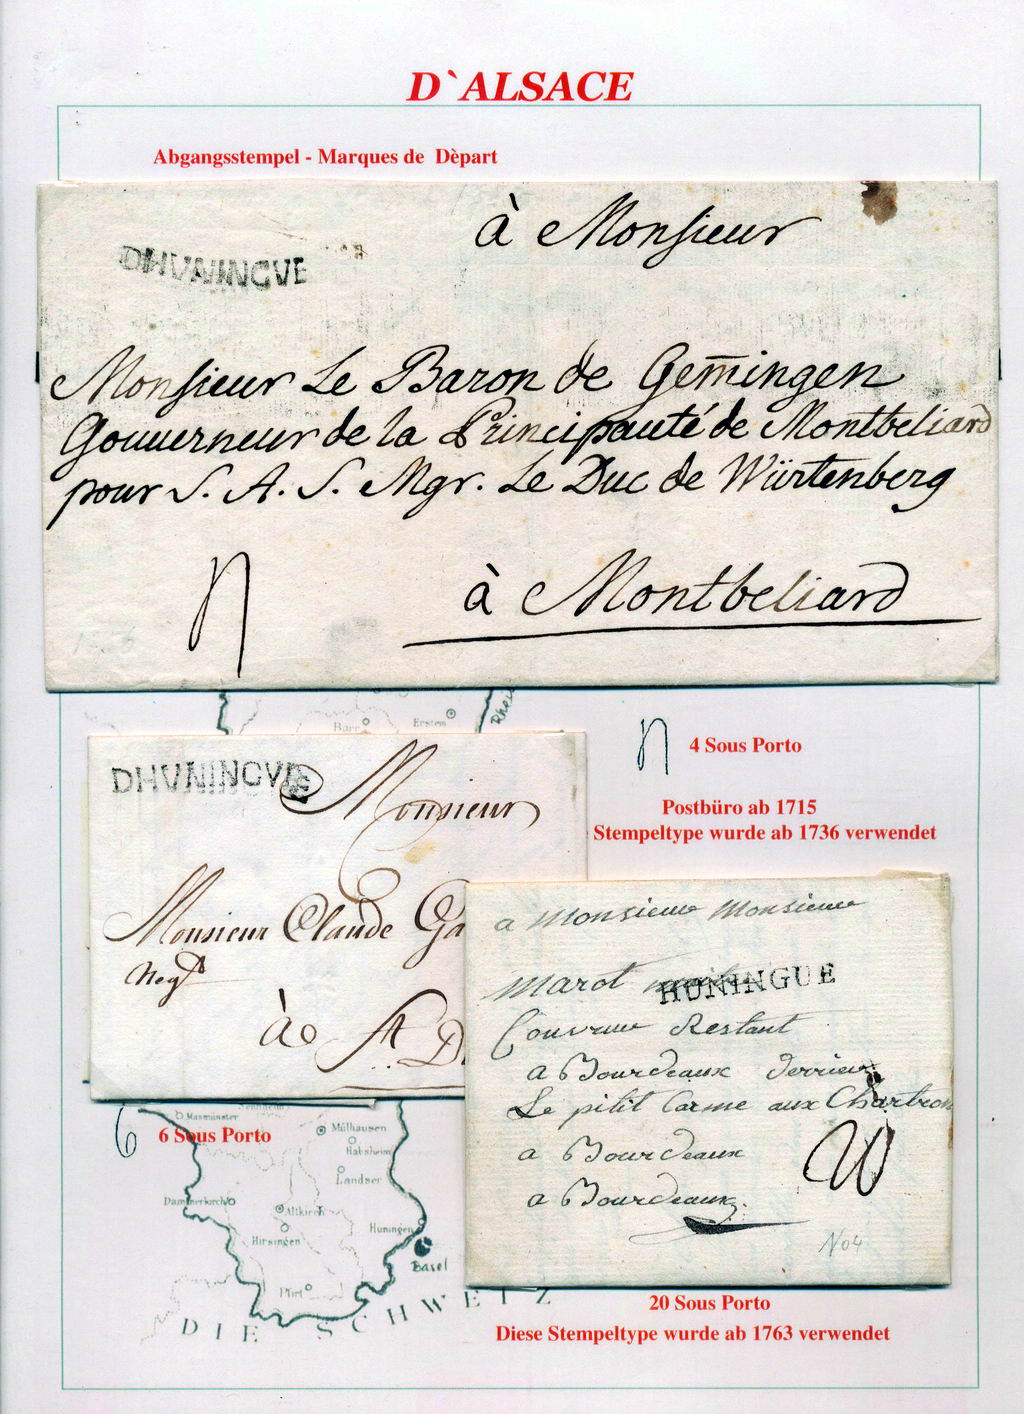 D`ALSACE
Abgangsstempel - Marques de Dèpart
à Monsieur
DHVNINGVE
Monsieur Le Baron de Gem̄ingen
Gouuerneur de la Principauté de Montbeliard
pour S. A. S. Mgr. Le Duc de Würtenberg
à Montbeliard
Barr
Erstein
4 Sous Porto
Postbüro ab 1715
Stempeltype wurde ab 1736 verwendet
DHVNINGVE
Monsieur
Monsieur Claude Ga
Negt
à St. D
a Monsieur Monsieur
Marot
HUNINGUE
Restant
a Bourdeaux derrier
Le pitit Carme aux Chartron
a Bourdeaux
a Bourdeaux
No4
6
6 Sous Porto
Masmünster
Mülhausen
Habsheim
Landser
Dammerkirch
Altkirch
Hirsingen
Huningen
Basel
Pfirt
DIE SCHWEIZ
20 Sous Porto
Diese Stempeltype wurde ab 1763 verwendet